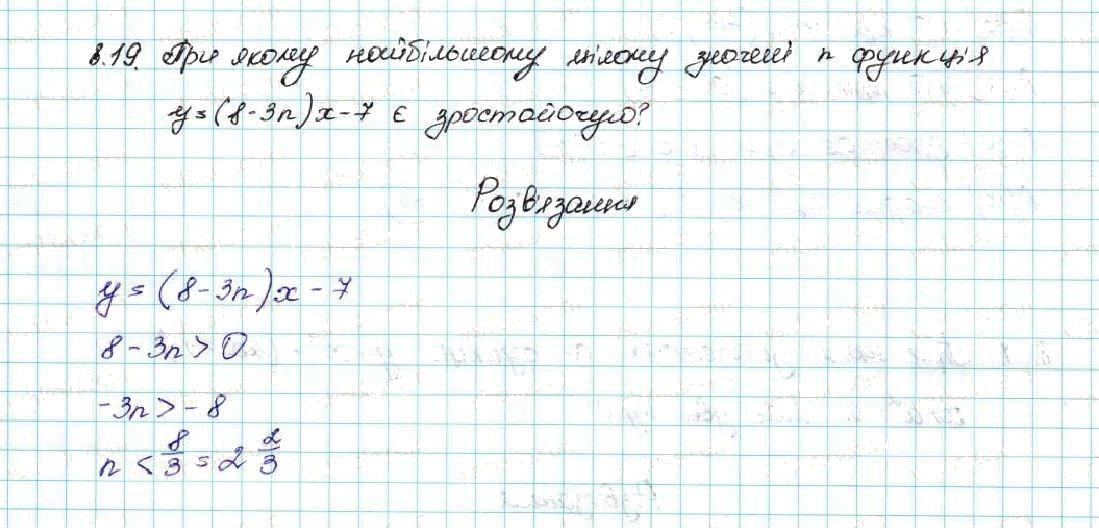 8.19. При якому найбільшому цілому значені n функція
y=(8-3n)x-7 є зростаючою?
Розв'язання
y=(8-3n)x-7
8-3n>0
-3n>-8
n<8/3=2 2/3